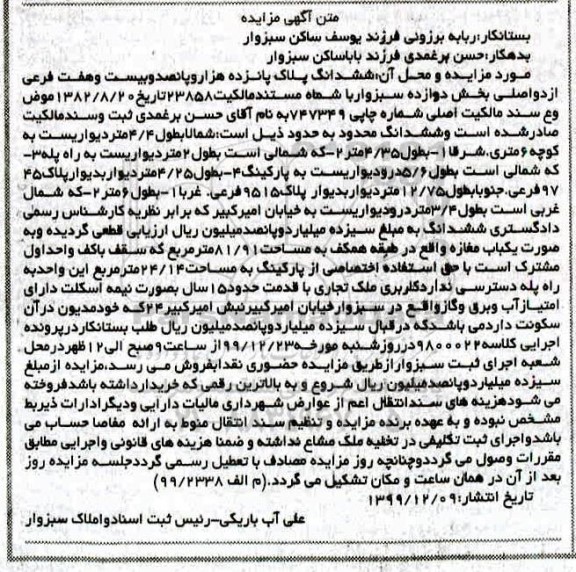 متن آگهی مزایده
بستانکار:ربابه برزونی فرزند یوسف ساکن سبزوار
بدهکار:حسن برغمدی فرزند باباساکن سبزوار
مورد مزایده و محل آن:ششدانگ پلاک پانزده هزاروپانصدوبیست وهفت فرعی
ازدواصلی بخش دوازده سبزوارباشماه مستندمالکیت۲۳۸۵۸تاریخ۱۳۸۲/۸/۲۰موض
وع سند مالکیت اصلی شماره چاپی ۷۴۷۳۴۹به نام آقای حسن برغمدی ثبت وسندمالکیت
صادرشده است وششدانگ محدود به حدود ذیل است:شمالابطول۴/۴متردیواریست به
کوچه۶متری.شرقا ۱-بطول۴/۳۵متر۲-که شمالی است بطول۲متردیواریست به راه پله۳-
که شمالی است بطول۵/۶درودیواریست به پارکینگ۴-بطول۴/۲۵متردیواربدیوارپلاک۴۵
۹۷فرعی.جنوبابطول۱۲/۷۵متردیواربدیوار پلاک۹۵۱۵فرعی. غربا۱-بطول۶متر۲-که شمال
غربی است بطول۳/۴متردرودیواریست به خیابان امیرکبیر که برابر نظریه کارشناس رسمی
دادگستری ششدانگ به مبلغ سیزده میلیاردوپانصدمیلیون ریال ارزیابی قطعی گردیده وبه
صورت یکباب مغازه واقع در طبقه همکف به مساحت۸۱/۹۱مترمربع که سقف باکف واحداول
مشترک است با حق استفاده اختصاصی از پارکینگ به مساحت۲۴/۱۴مترمربع این واحدبه
راه پله دسترسی نداردکاربری ملک تجاری با قدمت حدود۱۵سال بصورت نیمه اسکلت دارای
امتیازآب وبرق وگازواقع در سبزوارخیابان امیرکبیرنبش امیرکبیر۲۴که خودمدیون درآن
سکونت داردمی باشدکه درقبال سیزده میلیاردوپانصدمیلیون ریال طلب بستانکاردرپرونده
اجرایی کلاسه۹۸۰۰۰۲۲درروزشنبه مورخه۹۹/۱۲/۲۳از ساعت۹صبح الی۱۲ظهردرمحل
شعبه اجرای ثبت سبزواراز‌طریق مزایده حضوری نقدابفروش می رسد،مزایده ازمبلغ
سیزده میلیاردوپانصدمیلیون ریال شروع و به بالاترین رقمی که خریدارداشته باشدفروخته
می شودهزینه های سندانتقال اعم از عوارض شهرداری مالیات دارایی ودیگرادارات ذیربط
مشخص نبوده و به عهده برنده مزایده و تنظیم سند انتقال منوط به ارائه مفاصا حساب می
باشدواجرای ثبت تکلیفی در تخلیه ملک مشاع نداشته و ضمنا هزینه های قانونی واجرایی مطابق
مقررات وصول می گرددوچنانچه روز مزایده مصادف با تعطیل رسمی گرددجلسه مزایده روز
بعد از آن در همان ساعت و مکان تشکیل می گردد.(م الف ۹۹/۲۳۳۸)
تاریخ انتشار:۱۳۹۹/۱۲/۰۹
علی آب باریکی-رئیس ثبت اسنادواملاک سبزوار